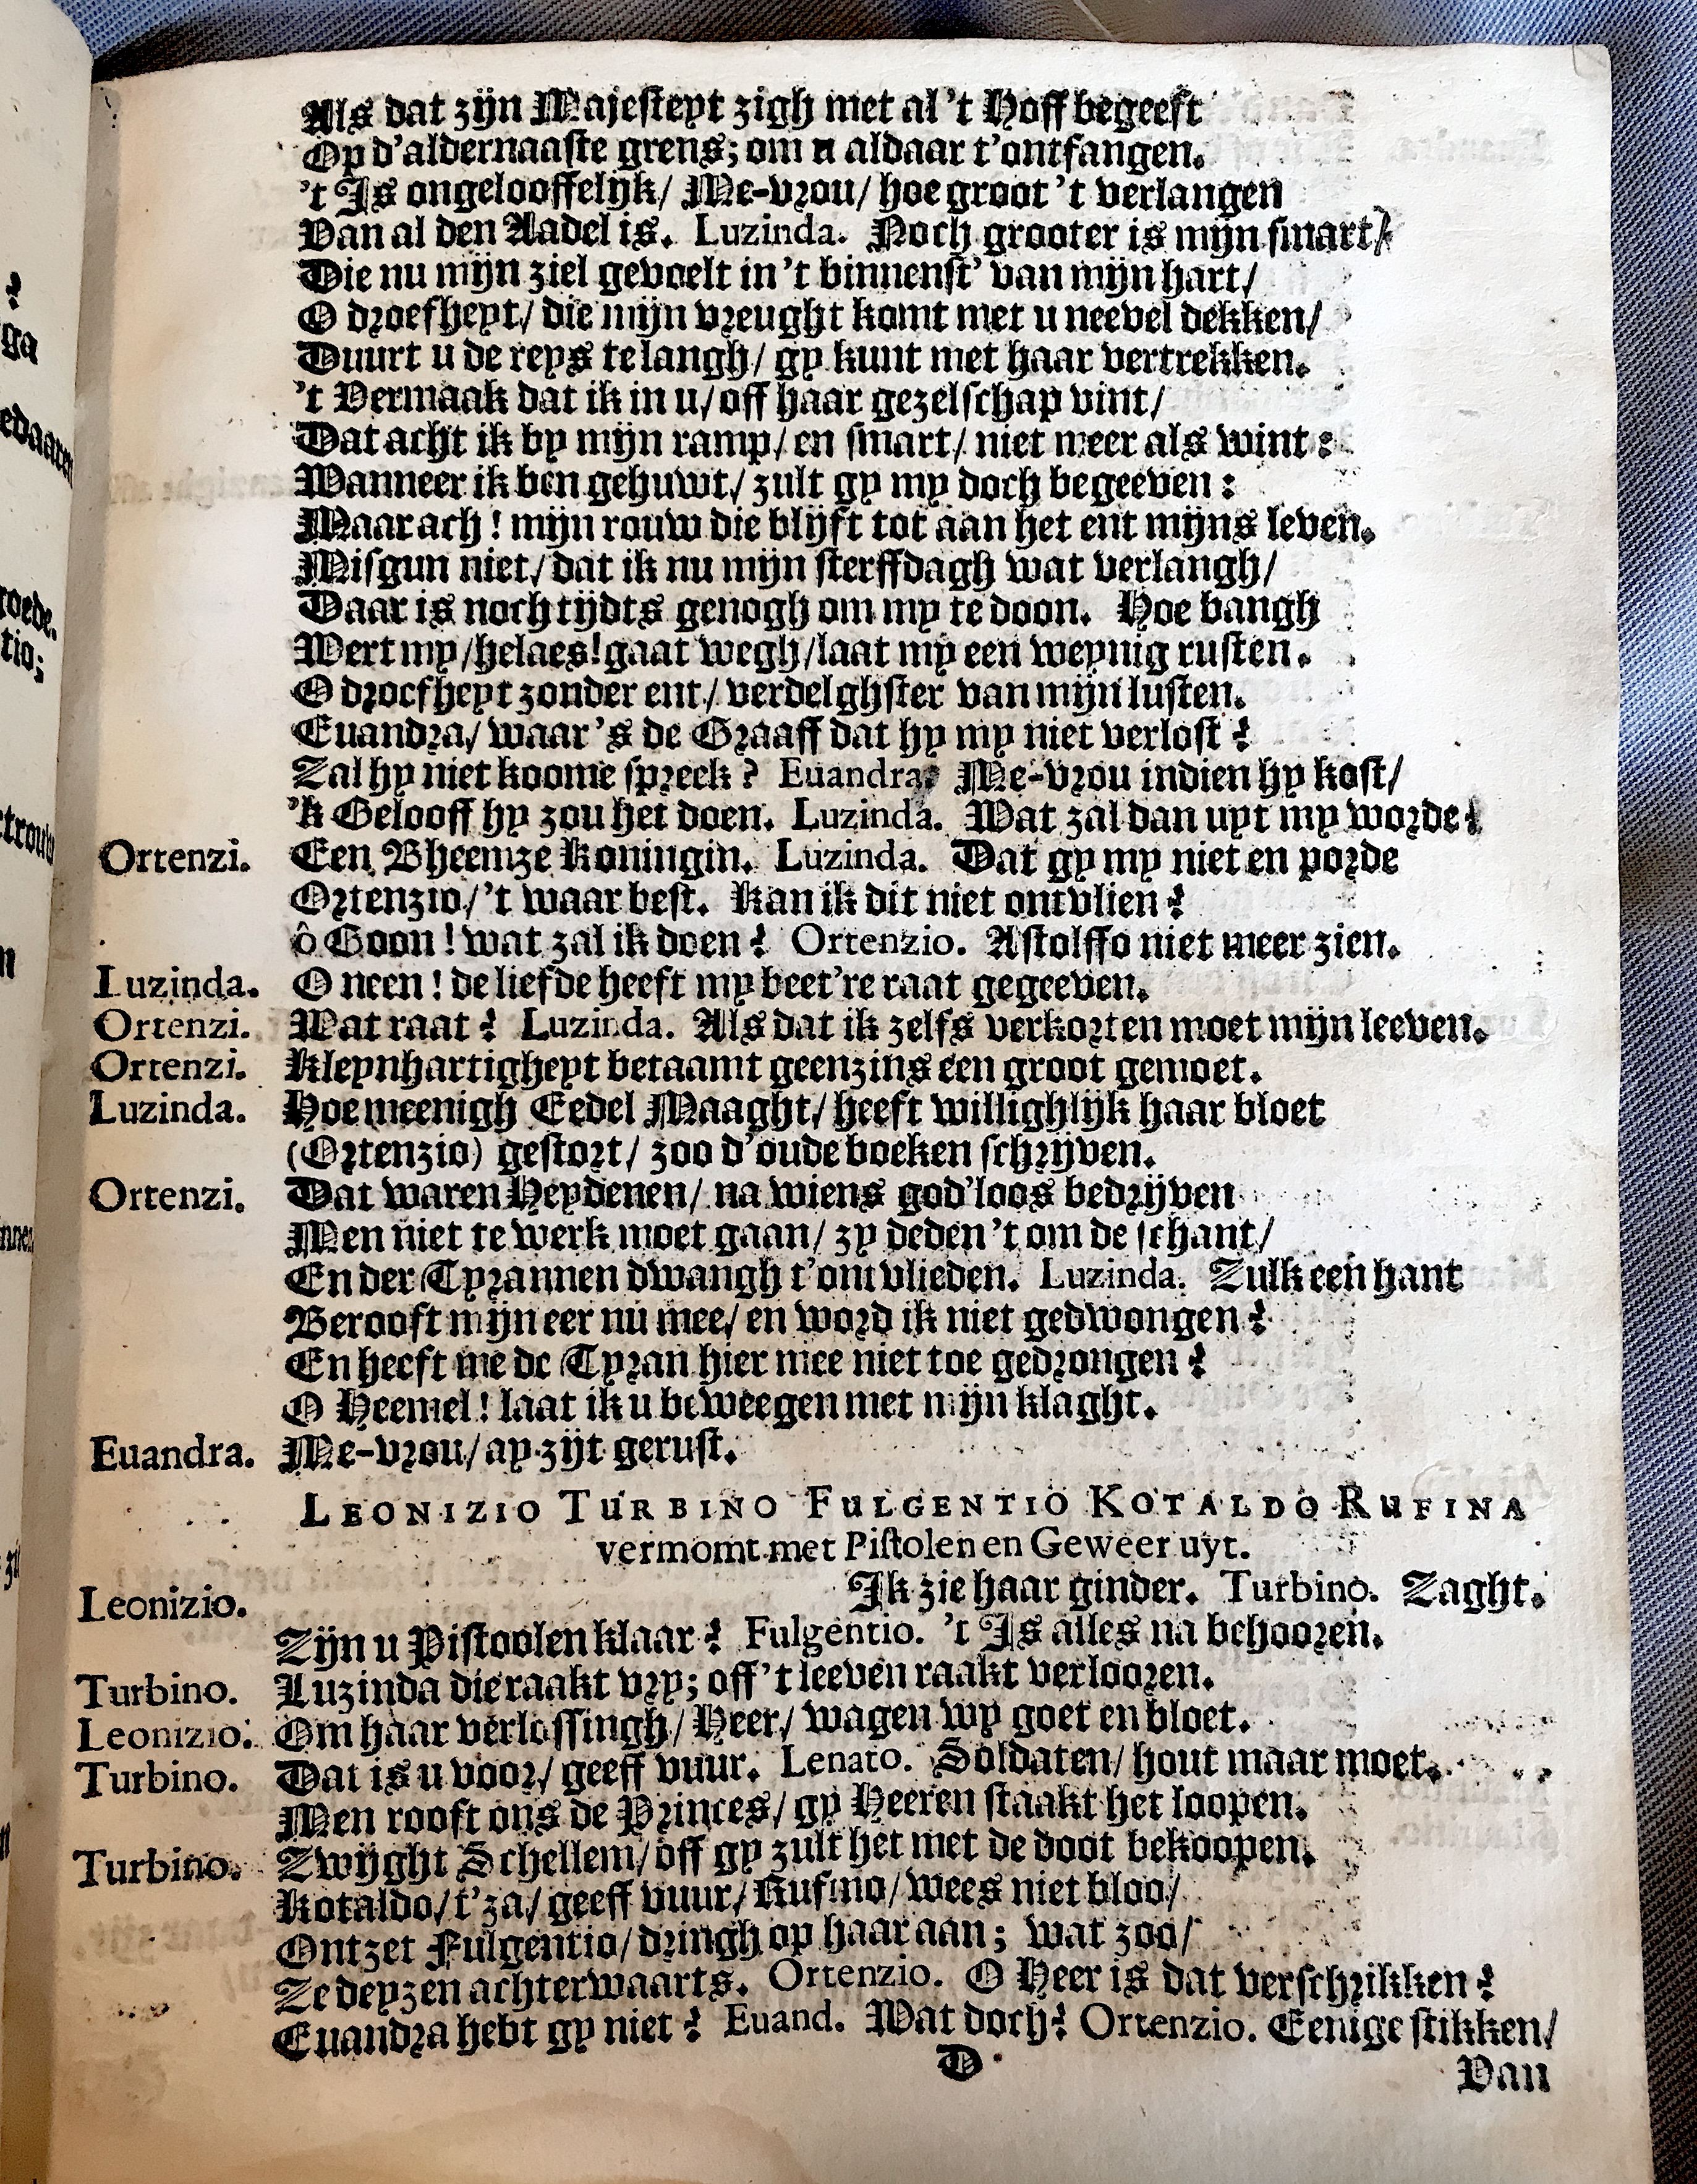 Als dat zijn Majesteyt zigh met al 't Hoff begeeft
Op d'aldernaaste grens; om u aldaar t'ontfangen.
't Is ongelooffelijk/ Me-vrou/ hoe groot 't verlangen
Van al den Aadel is. Luzinda. Noch grooter is mijn smart/
Die nu mijn ziel gevoelt in 't binnenst' van mijn hart/
O droefheyt/ die mijn vreught komt met u neevel dekken/
Duurt u de reys te langh/ gy kunt met haar vertrekken.
't Vermaak dat ik in u/ off haar gezelschap vint/
Dat acht ik by mijn ramp/ en smart/ niet meer als wint:
Wanneer ik ben gehuwt/ zult gy my doch begeeven:
Maar ach! mijn rouw die blijft tot aan het ent mijns leven.
Misgun niet/ dat ik nu mijn sterffdagh wat verlangh/
Daar is noch tijdts genogh om my te doon. Hoe bangh
Wert my/ helaes! gaat wegh/ laat my een weynig rusten.
O droefheyt zonder ent/ verdelghster van mijn lusten.
Euandra/ waar 's de Graaff dat hy my niet verlost?
Zal hy niet koome spreek? Euandra. Me-vrou indien hy kost/
'k Gelooff hy zou het doen. Luzinda. Wat zal dan uyt my worde?
Ortenzi. Een Bheemze Koningin. Luzinda. Dat gy my niet en porde
Ortenzio/ 't waar best. Kan ik dit niet ontvlien?
ô Goon! wat zal ik doen? Ortenzio. Astolffo niet meer zien.
Luzinda. O neen! de liefde heeft my beet're raat gegeeven.
Ortenzi. Wat raat? Luzinda. Als dat ik zelfs verkorten moet mijn leeven.
Ortenzi. Kleynhartigheyt betaamt geenzins een groot gemoet.
Luzinda. Hoe meenigh Eedel Maaght/ heeft willighlijk haar bloet
(Ortenzio) gestort/ zoo d'oude boeken schrijven.
Ortenzi. Dat waren Heydenen/ na wiens god'loos bedrijven
Men niet te werk moet gaan/ zy deden 't om de schant/
En der Tyrannen dwangh t'ontvlieden. Luzinda. Zulk een hant
Berooft mijn eer nu mee/ en word ik niet gedwongen?
En heeft me de Tyran hier mee niet toe gedrongen?
O Heemel! laat ik u beweegen met mijn klaght.
Euandra. Me-vrou/ ay zijt gerust.
LEONIZIO TURBINO FULGENTIO KOTALDO RUFINA
vermomt met Pistolen en Geweer uyt.
Leonizio. Ik zie haar ginder. Turbino. Zaght.
Zijn u Pistoolen klaar? Fulgentio. 't Is alles na behooren.
Turbino. Luzinda die raakt vry; off 't leeven raakt verlooren.
Leonizio. Om haar verlossingh/ Heer/ wagen wy goet en bloet.
Turbino. Dat is u voor/ geeff vuur. Lenato. Soldaten/ hout maar moet.
Men rooft ons de Princes/ gy Heeren staakt het loopen.
Turbino. Zwijght Schellem/ off gy zult het met de doot bekoopen.
Kotaldo/ t'za/ geeff vuur/ Rufino/ wees niet bloo/
Ontzet Fulgentio/ dringh op haar aan; wat zoo/
Ze deyzen achterwaarts. Ortenzio. O Heer is dat verschrikken?
Euandra hebt gy niet? Euand. Wat doch? Ortenzio. Eenige stikken/
D
Van